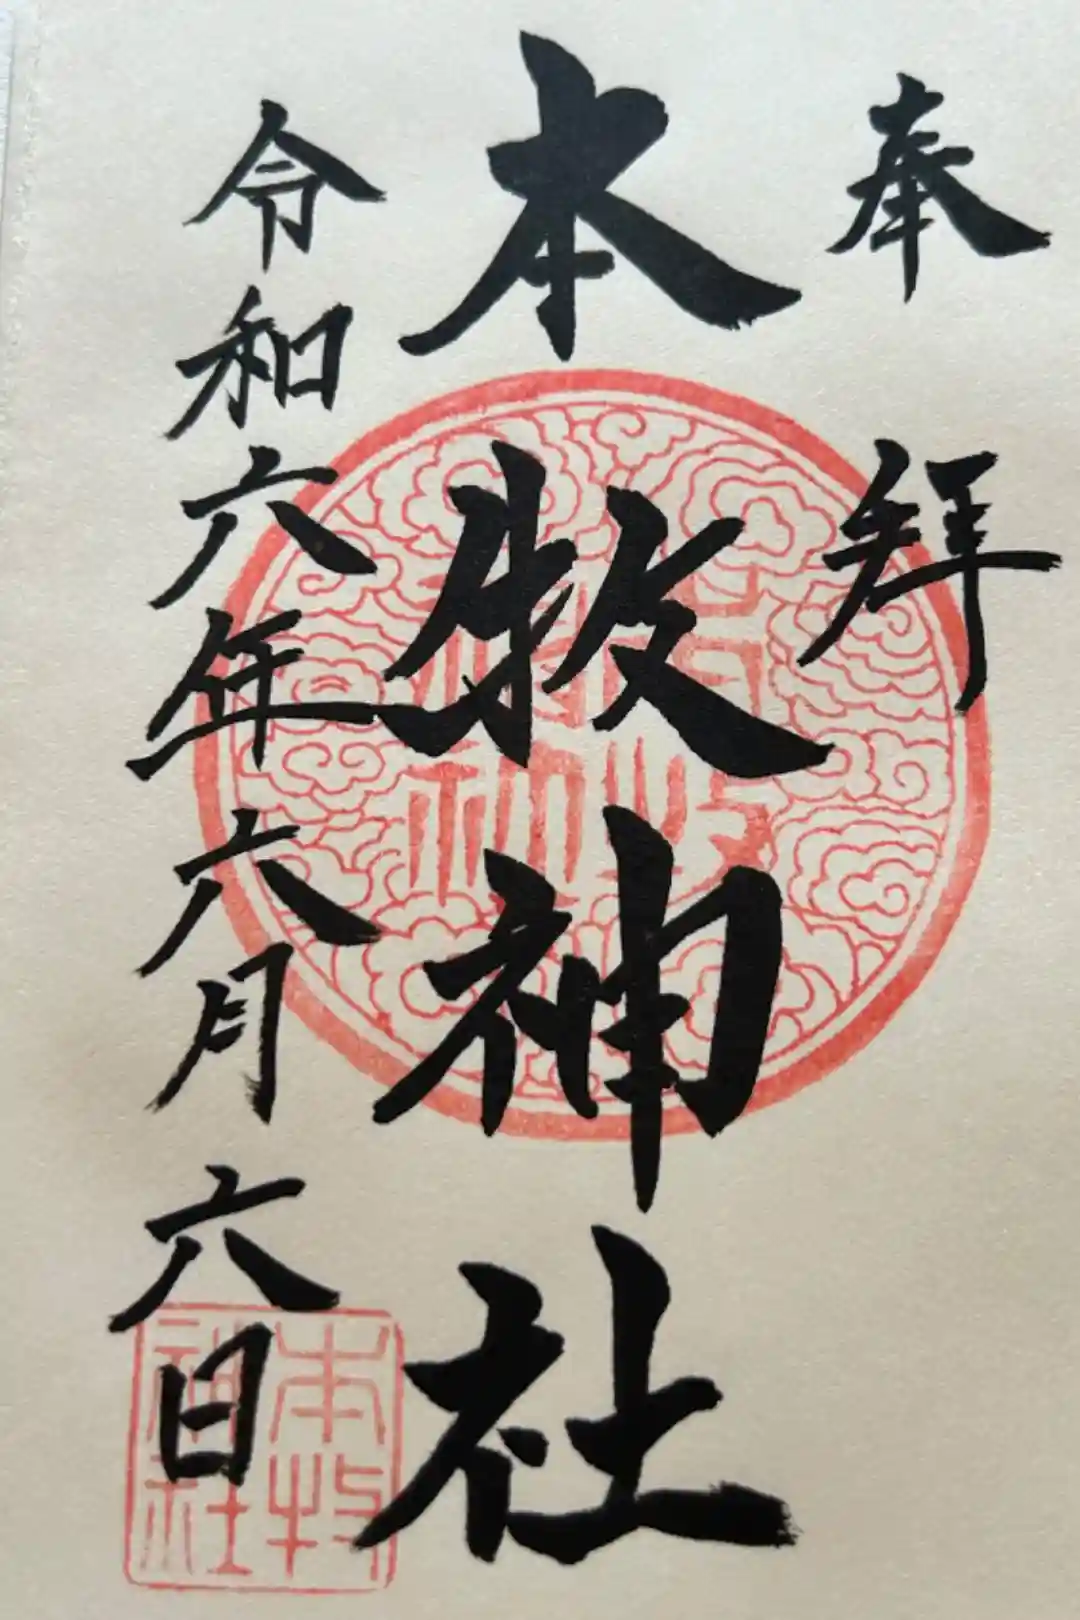 奉拜
本牧神社
令和六年六月六日
本牧
神社